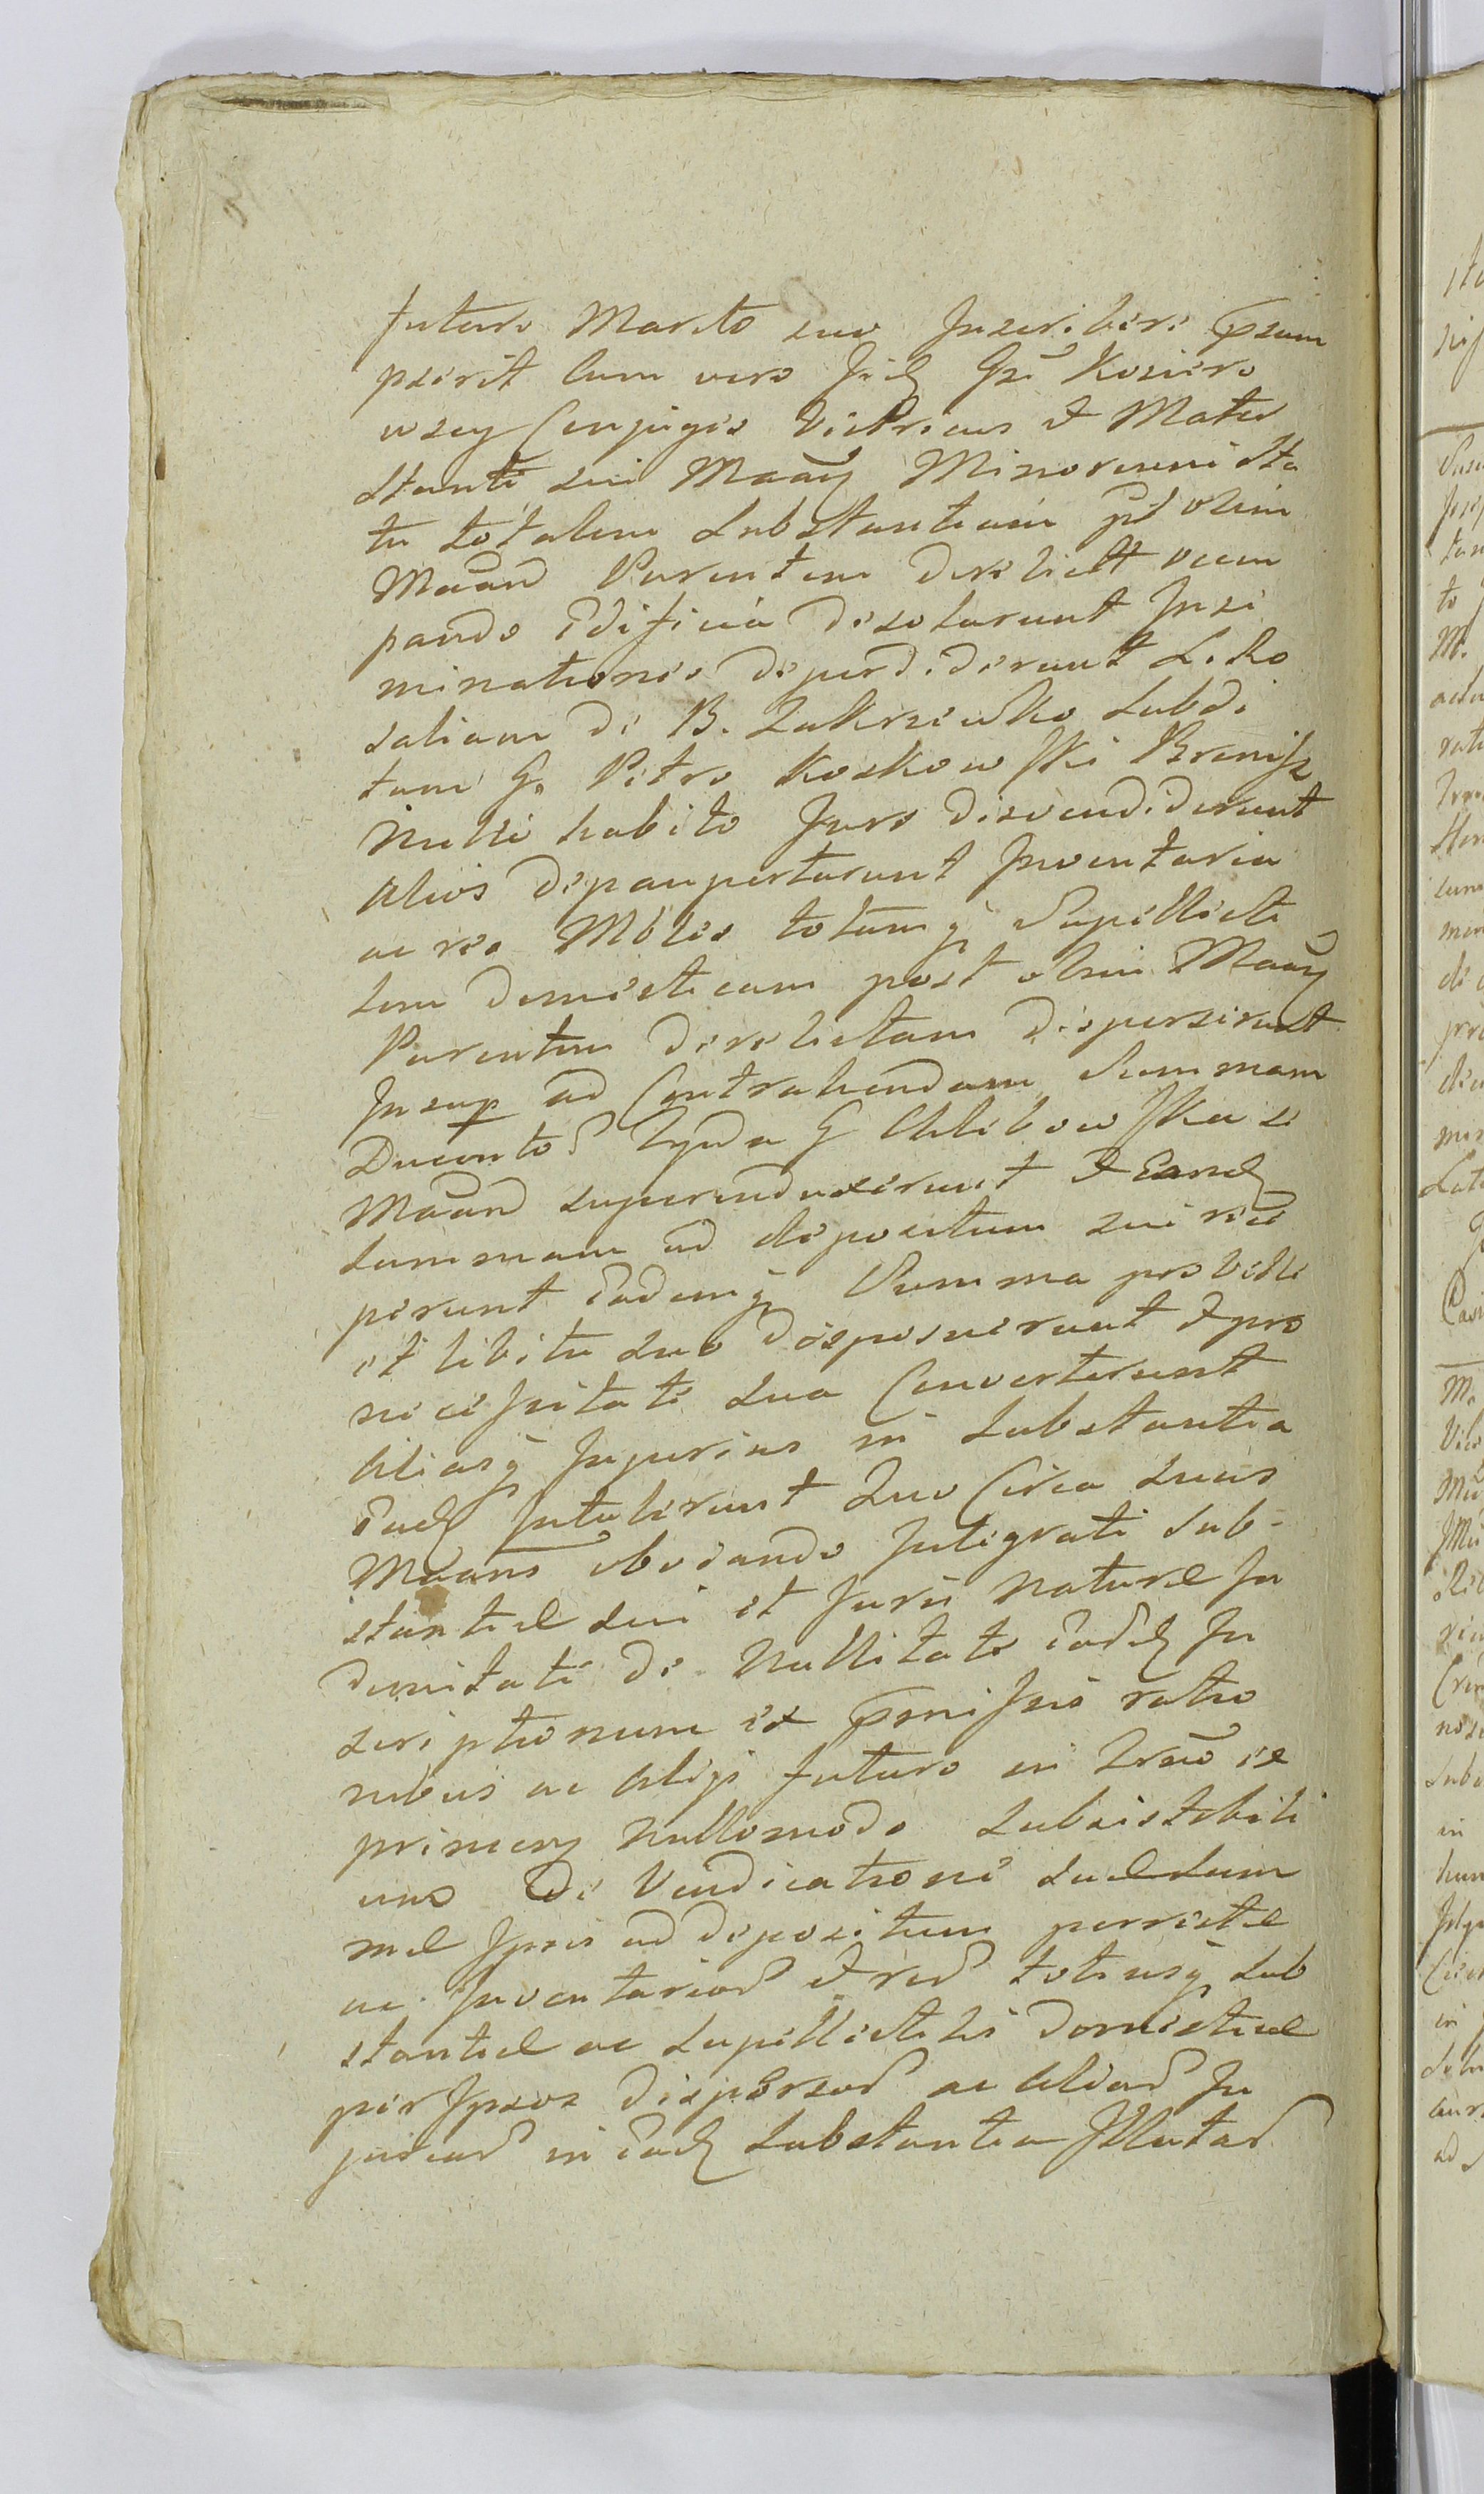 futuro Marito suo Inscribere psum
pserit cum vero Jid Gsi Kosiero
wscy Conjuges Vitricus et Mater
stante sui Maay Minorenni sta
tu totalem Substantiam pt olim
Maand Parentem derelict occu
pando Edificia desolarunt Inse
minationes deperdiderunt L. Ro
saliam de B. Zakrzewko Subdi
tam G. Petro Koskowski Bremisz
nullo habito Jure disvendiderunt
Alios depaupertarunt Inventaria
ac res Mbles totamq Supellecti
lem domesticam post olim Maay
Parentem derelictam disperserunt
Insup ad Contrahendam Summam
Ducentos Tynda G Chlebowska se
Maand superinduxerunt et Eand
summam ad depositum sui rece
perunt Eademq Summa pro velle
et libitu suo disposuerunt et pro
necessitate sua Converterunt
Aliasq Injurias in Substantia
Ead Intulerunt Quo Circa Suus
Maans obviando Integrati Sub-
stantiæ sui et Juris naturæ In
demnitati de Nullitate Eadem In
scriptionum ex pmissis ratio
nibus ac Aliis futuro in Trmo ex
primen nullomodo Subsistibili
um De Vendicatione suæ Sum
mæ Ipsis ad depositum perrectæ
ac Inventariad et red totiusq Sub
stantiæ ac Supellectilis domesticæ
per Ipsos dispersad ac Aliad In
juriad in Ead Substantia Illatad